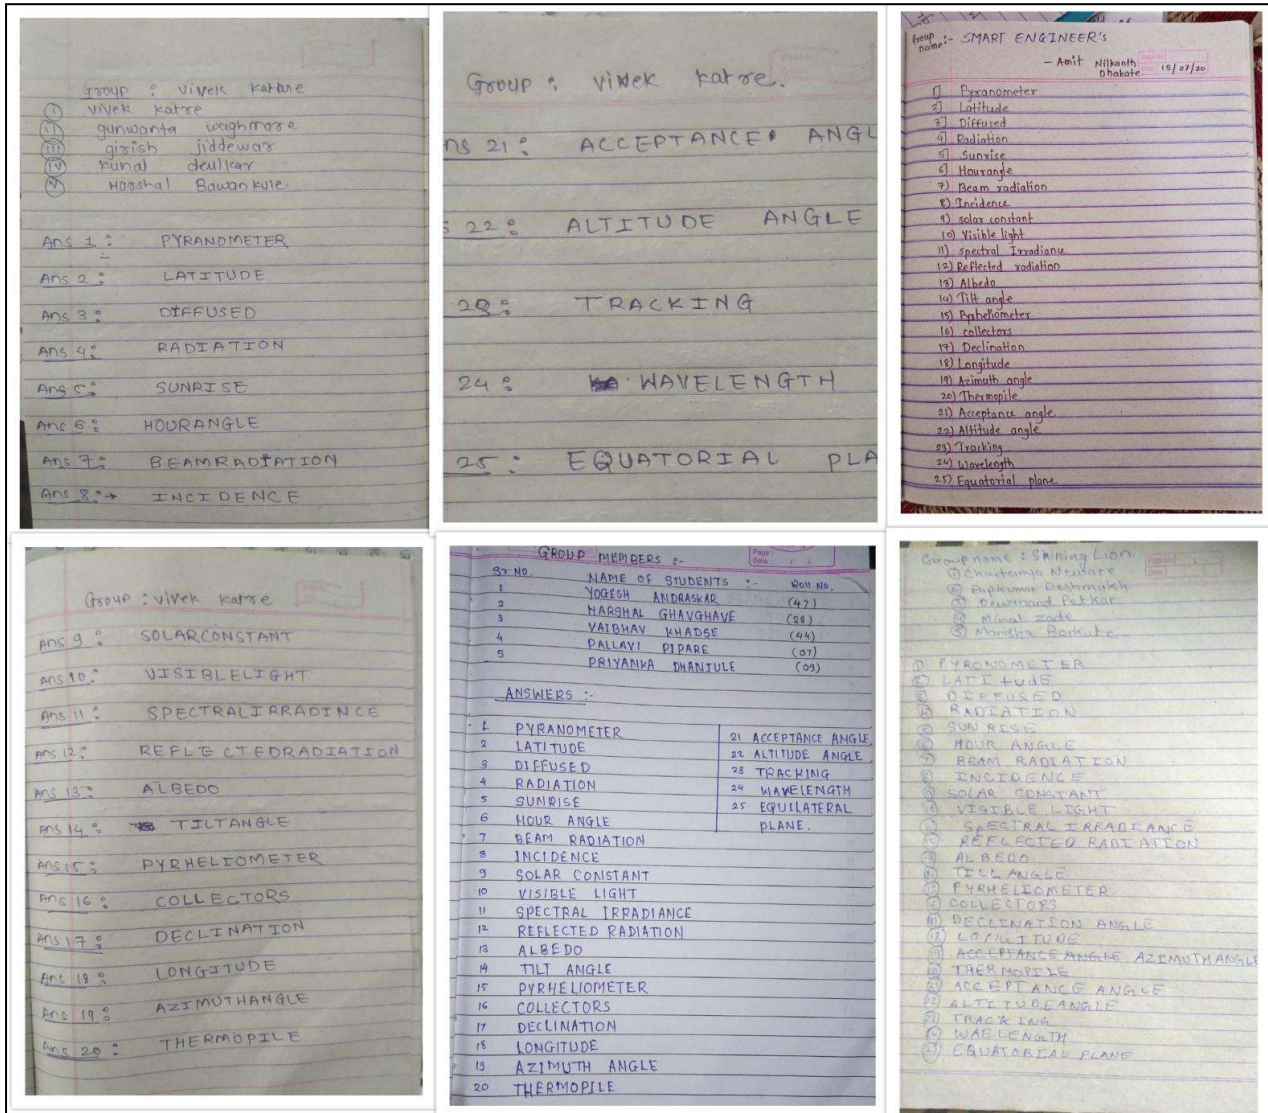 Group : vivek katare
I vivek katre
II gunwanta waghmare
III girish jiddewar
IV kunal deulkar
V Harshal Bawankule
Ans 1 : PYRANOMETER
Ans 2 : LATITUDE
Ans 3 : DIFFUSED
Ans 4 : RADIATION
Ans 5 : SUNRISE
Ans 6 : HOURANGLE
Ans 7 : BEAMRADIATION
Ans 8 :→ INCIDENCE
Group : vivek katre.
ns 21 : ACCEPTANCE ANGL
s 22 : ALTITUDE ANGLE
23 : TRACKING
24 : WAVELENGTH
25 : EQUATORIAL PLA
Group name :- SMART ENGINEER's
- Amit Nilkanth Dhakate 15/07/20
1] Pyranometer
2] Latitude
3] Diffused
4] Radiation
5] Sunrise
6] Hourangle
7) Beam radiation
8) Incidence
9) solar constant
10) Visible light
11) spectral Irradiance
12) Reflected radiation
13) Albedo
14) Tilt angle
15) Pyrheliometer
16) collectors
17) Declination
18) Longitude
19) Azimuth angle
20) Thermopile
21) Acceptance angle
22) Altitude angle
23) Tracking
24) Wavelength
25) Equatorial plane
Group : vivek katre
Ans 9 : SOLARCONSTANT
Ans 10 : VISIBLELIGHT
Ans 11 : SPECTRALIRRADINCE
Ans 12 : REFLECTEDRADIATION
Ans 13 : ALBEDO
Ans 14 : TILTANGLE
Ans 15 : PYRHELIOMETER
Ans 16 : COLLECTORS
Ans 17 : DECLINATION
Ans 18 : LONGITUDE
Ans 19 : AZIMUTHANGLE
Ans 20 : THERMOPILE
GROUP MEMBERS :-
Page :
Date : / /
Sr. No. NAME OF STUDENTS :- Roll No.
1 YOGESH ANDRASKAR (47)
2 HARSHAL GHAVGHAVE (28)
3 VAIBHAV KHADSE (44)
4 PALLAVI PIPARE (07)
5 PRIYANKA DHANJULE (09)
ANSWERS :-
1 PYRANOMETER
2 LATITUDE
3 DIFFUSED
4 RADIATION
5 SUNRISE
6 HOUR ANGLE
7 BEAM RADIATION
8 INCIDENCE
9 SOLAR CONSTANT
10 VISIBLE LIGHT
11 SPECTRAL IRRADIANCE
12 REFLECTED RADIATION
13 ALBEDO
14 TILT ANGLE
15 PYRHELIOMETER
16 COLLECTORS
17 DECLINATION
18 LONGITUDE
19 AZIMUTH ANGLE
20 THERMOPILE
21 ACCEPTANCE ANGLE
22 ALTITUDE ANGLE
23 TRACKING
24 WAVELENGTH
25. EQUILATERAL
PLANE.
Group name : Shining Lion
① Chaitanya Neware
② Deshmukh
③ Dewanand Petkar
④ Minal Zade
⑤ Manisha Borkute
① PYRONOMETER
② LATItudE
③ DIFFUSED
④ RADIATION
⑤ SUN RISE
⑥ HOUR ANGLE
⑦ BEAM RADIATION
⑧ INCIDENCE
⑨ SOLAR CONSTANT
⑩ VISIBLE LIGHT
⑪ SpECTRAL IRRADIANCE
⑫ REFLECTED RADIATION
⑬ ALBEDO
⑭ TILL ANGLE
⑮ PYRHELIOMETER
⑯ COLLECTORS
⑰ DECLINATION ANGLE
⑱ LONGITUDE
⑲ ACCEPTANCE ANGLE AZIMUTH ANGLE
⑳ THERMOPILE
㉑ ACCEPTANCE ANGLE
㉒ ALTITUDE ANGLE
㉓ TRACKING
㉔ WAELENGTH
㉕ EQUATORIAL PLANE